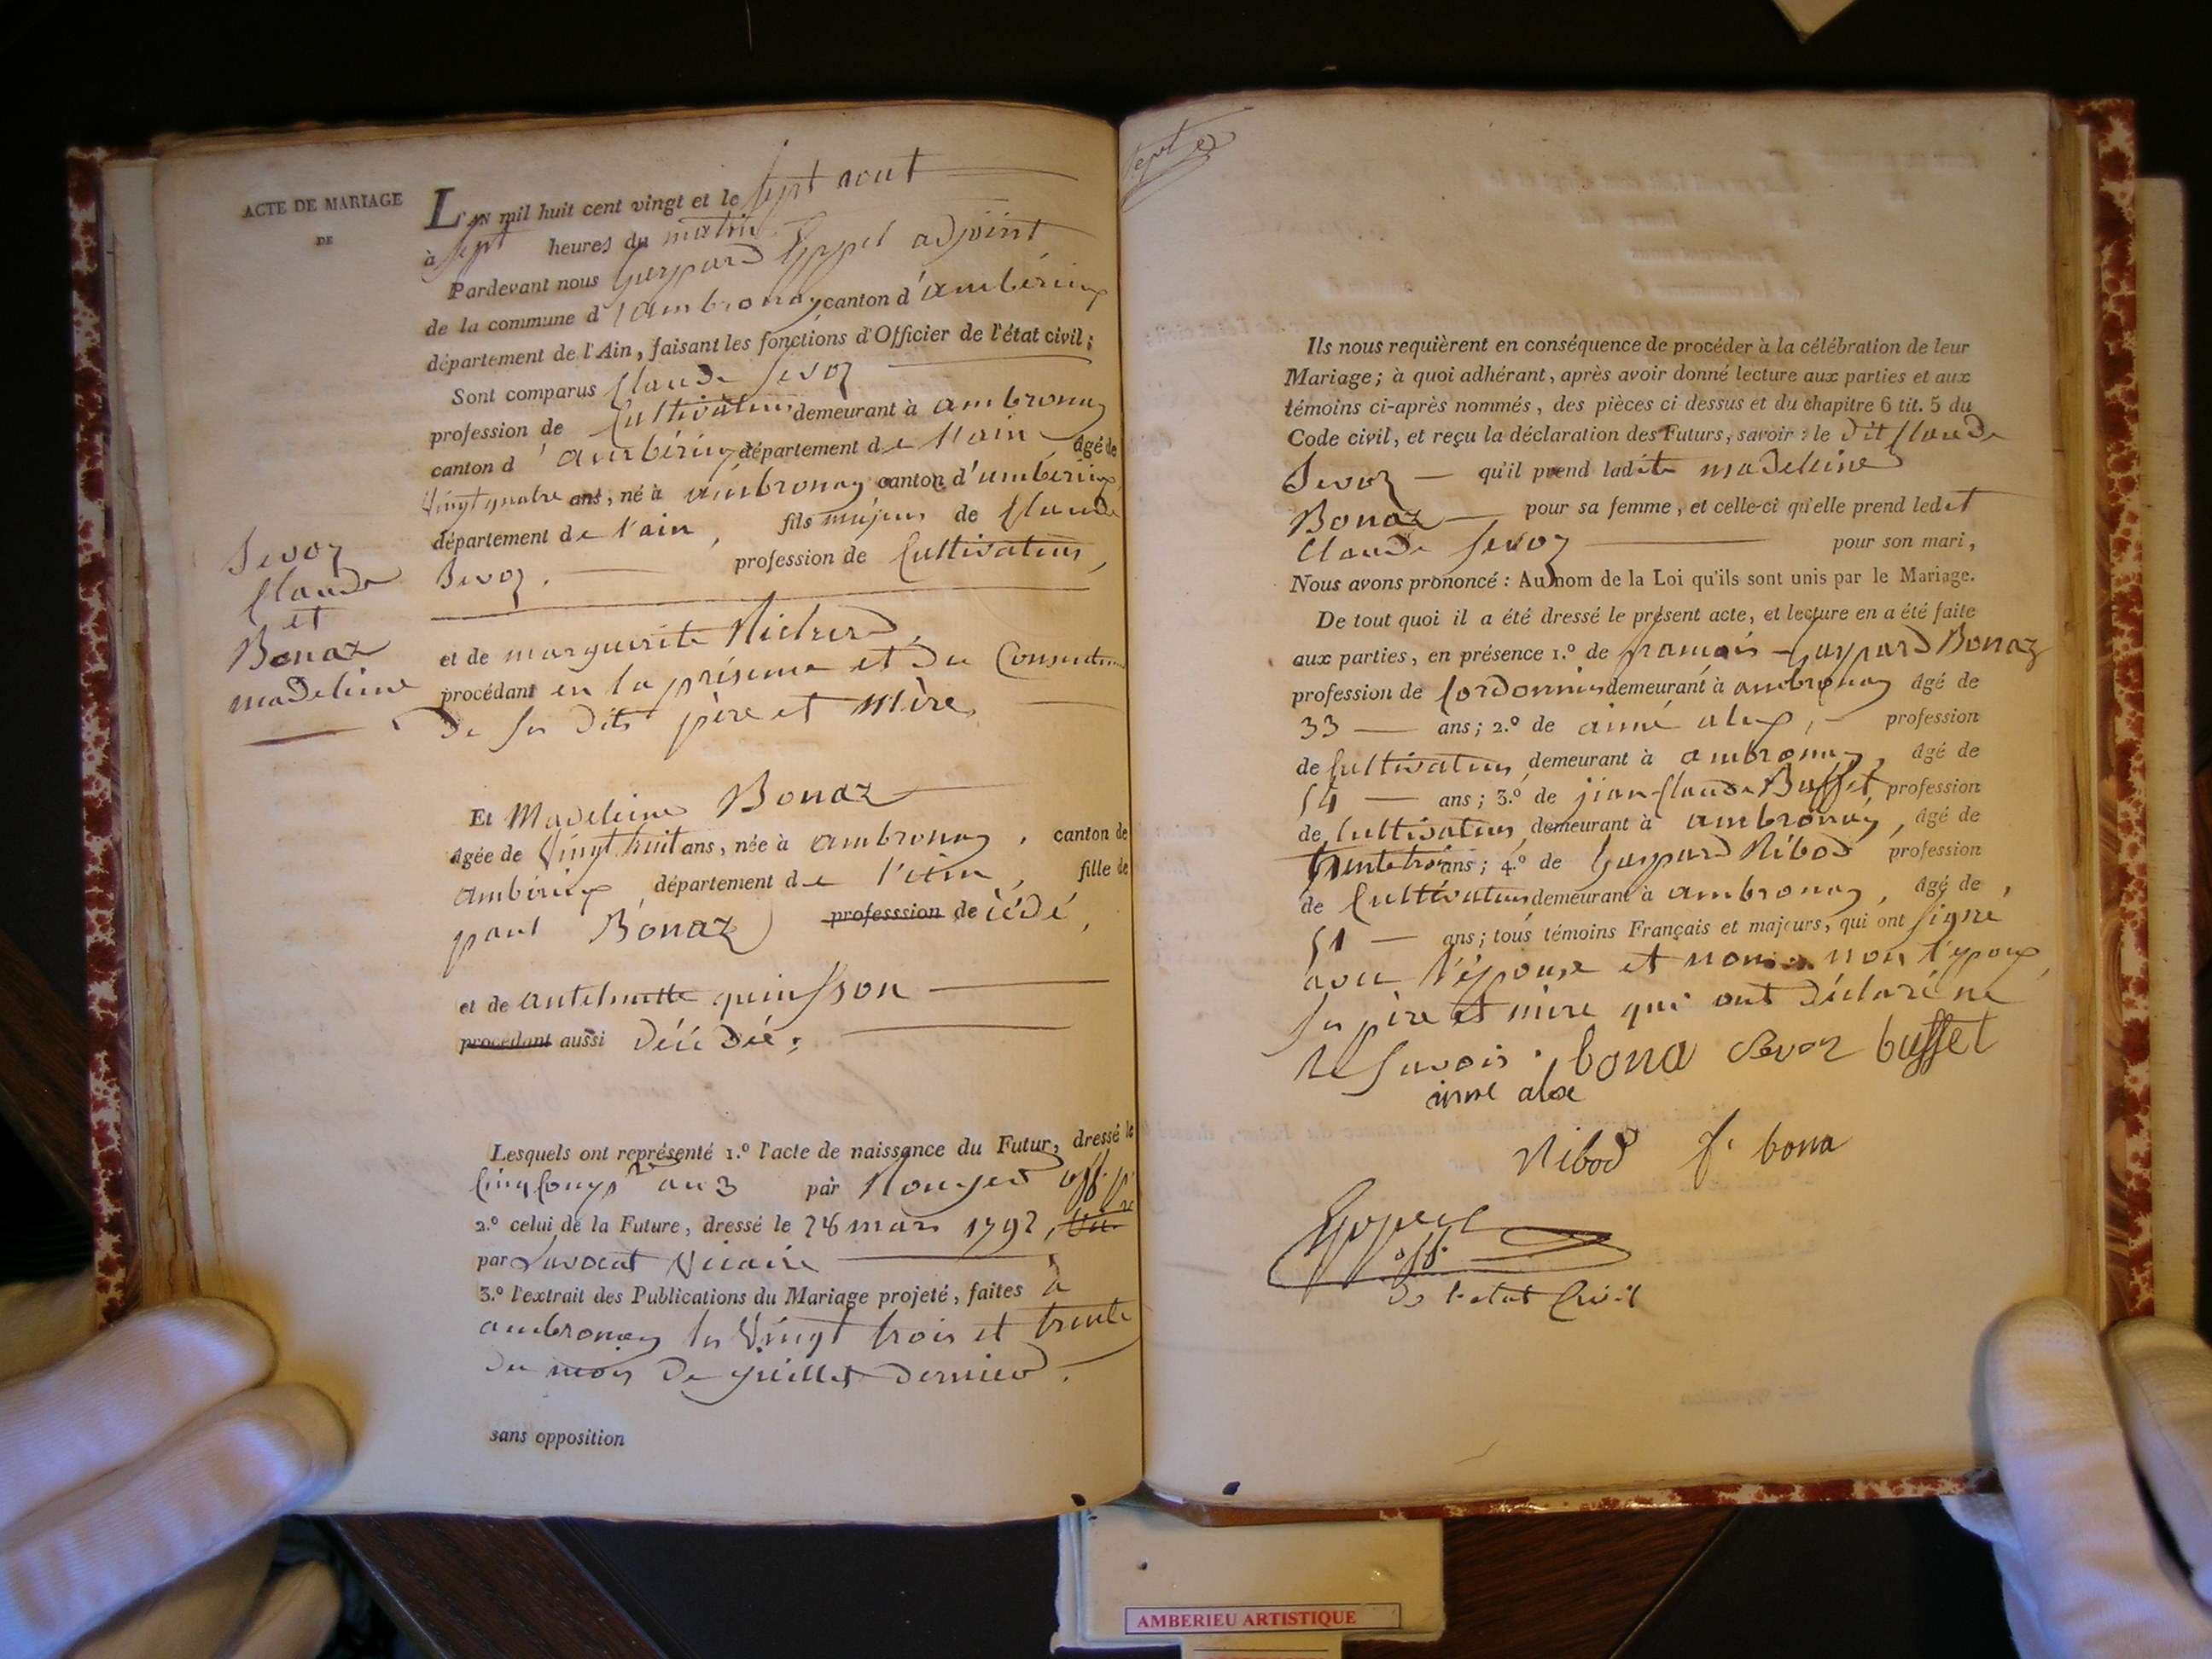 ACTE DE MARIAGE
DE
Sevoz
Claude
et
Bonaz
madeleine
L'AN mil huit cent vingt et le sept aout
à sept heures du matin
Pardevant nous Gaspard Eppel adjoint
de la commune d'ambronay canton d'ambérieux
département de l'Ain, faisant les fonctions d'Officier de l'état civil;
Sont comparus Claude Sevoz
profession de Cultivateur demeurant à ambronay
canton d'ambérieux département de l'ain âgé de
vingt quatre ans, né à ambronay canton d'ambérieux
département de l'ain, fils majeur de Claude
Sevoz, profession de Cultivateur,
et de marguerite
procédant en la présence et du Consentem
de ses dits père et mère,
Et Madeleine Bonaz
âgée de vingt huit ans, née à ambronay, canton de
ambérieux département de l'ain, fille de
paul Bonaz professsion de décédé,
et de antelmette quinsson
procedant aussi décédée;
Lesquels ont représenté 1.º l'acte de naissance du Futur, dressé le
cinq an 3 par off. p.
2.º celui de la Future, dressé le 28 mars 1792,
par Lavocat Vicaire
3.º l'extrait des Publications du Mariage projeté, faites à
ambronay les vingt trois et trente
du mois de juillet dernier.
sans opposition
Sept
Ils nous requièrent en conséquence de procéder à la célébration de leur
Mariage; à quoi adhérant, après avoir donné lecture aux parties et aux
témoins ci-après nommés, des pièces ci dessus et du chapitre 6 tit. 5 du
Code civil, et reçu la déclaration des Futurs, savoir: le dit Claude
Sevoz qu'il prend ladite madeleine
Bonaz pour sa femme, et celle-ci qu'elle prend ledit
Claude Sevoz pour son mari,
Nous avons prononcé: Au nom de la Loi qu'ils sont unis par le Mariage.
De tout quoi il a été dressé le présent acte, et lecture en a été faite
aux parties, en présence 1.º de françois-Gaspard Bonaz
profession de Cordonnier demeurant à ambronay âgé de
33 ans; 2.º de aimé alex, profession
de Cultivateur, demeurant à ambronay, âgé de
54 ans; 3.º de jean-Claude Buffet profession
de Cultivateur, demeurant à ambronay, âgé de
trente trois ans; 4.º de Gaspard Nibod profession
de Cultivateur demeurant à ambronay, âgé de
51 ans; tous témoins Français et majeurs, qui ont signé
avec l'épouse et nous non l'époux,
ses père et mère qui ont déclaré ne
le savoir. bona Sevoz buffet
aime alex
Nibod f. bona
Eppel
off.
de l'etat Civil
AMBERIEU ARTISTIQUE